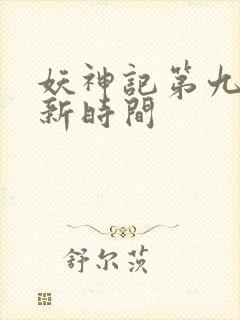 妖神記第九
新時間
舒尔茨